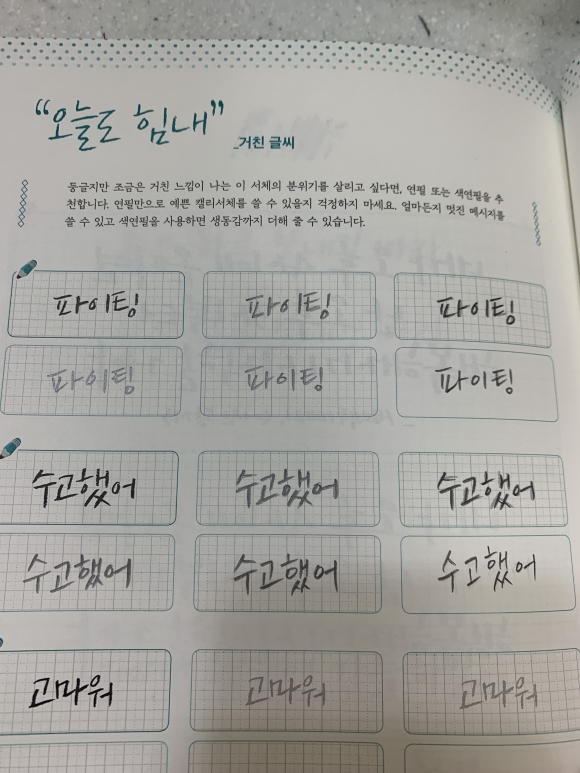 “오늘도 힘내”
_거친 글씨
둥글지만 조금은 거친 느낌이 나는 이 서체의 분위기를 살리고 싶다면, 연필 또는 색연필을 추
천합니다. 연필만으로 예쁜 캘리서체를 쓸 수 있을지 걱정하지 마세요. 얼마든지 멋진 메시지를
쓸 수 있고 색연필을 사용하면 생동감까지 더해 줄 수 있습니다.
파이팅 파이팅 파이팅
파이팅 파이팅 파이팅
수고했어 수고했어 수고했어
수고했어 수고했어 수고했어
고마워 고마워 고마워